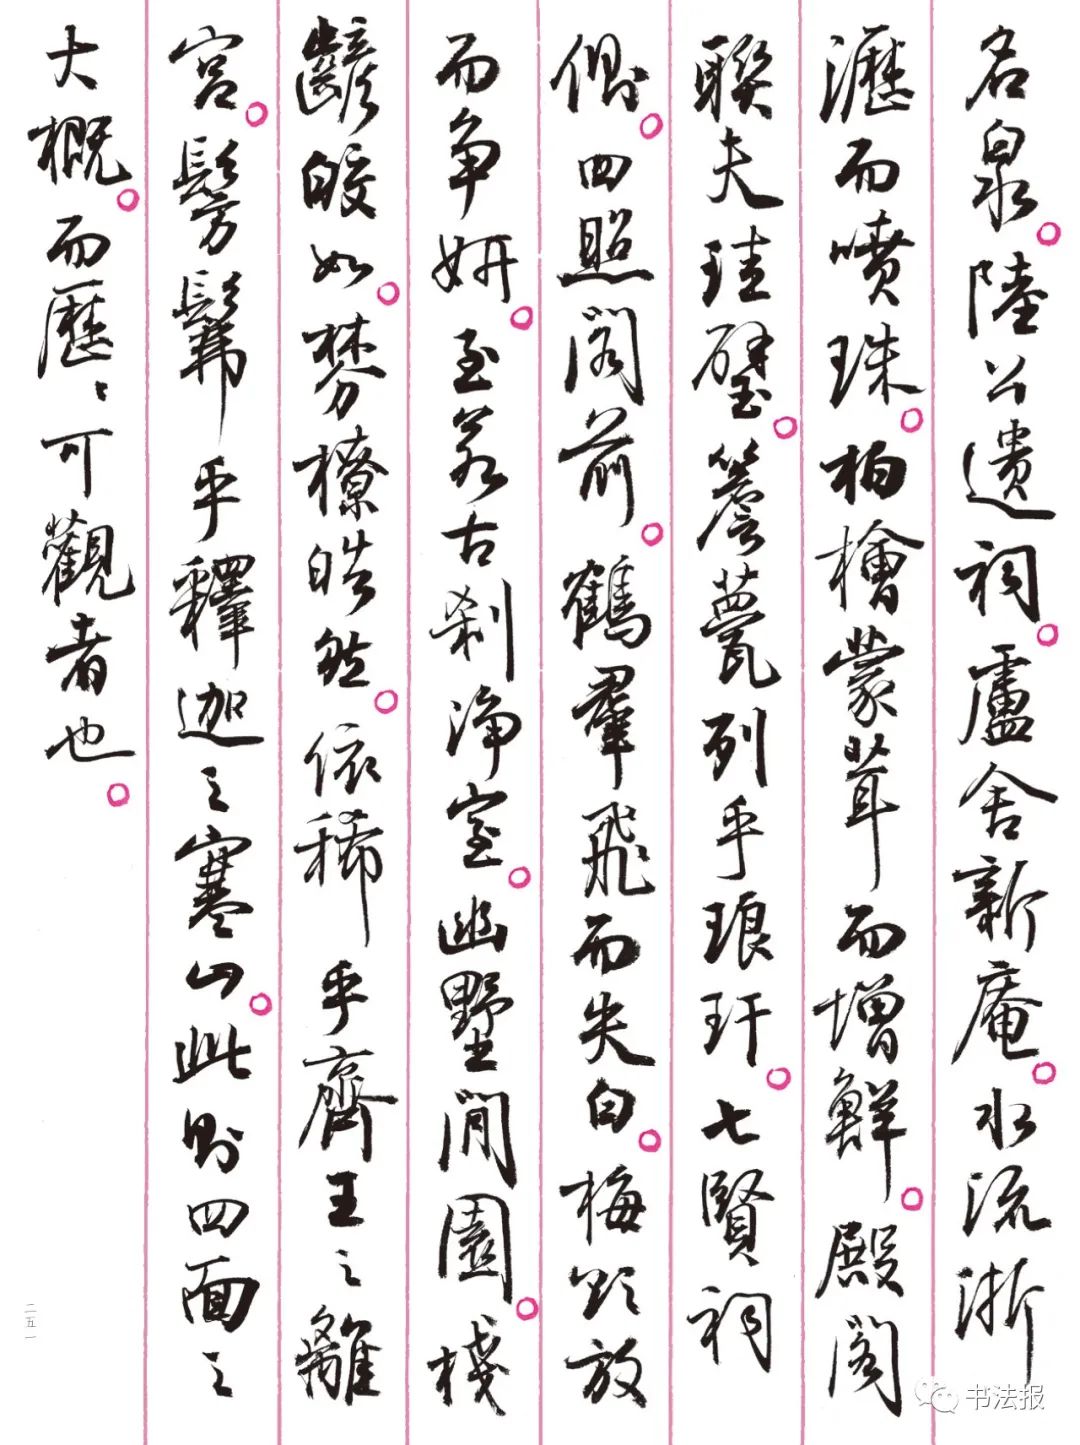 名泉。陸公遺祠。盧舍新庵。水流淅
瀝而噴珠。柏檜蒙茸而增鮮。殿閣
聯夫珪璧。簷甍列乎琅玕。七賢祠
側。四照閣前。鶴羣飛而失白。梅放
而争妍。至若古刹浄室。幽墅閒園。棧
齴皎如。棼橑皓然。依稀乎齊王之離
宮。髣髴乎釋迦之寒山。此則四面之
大概。而歷〻可觀者也。
二五一
书法报